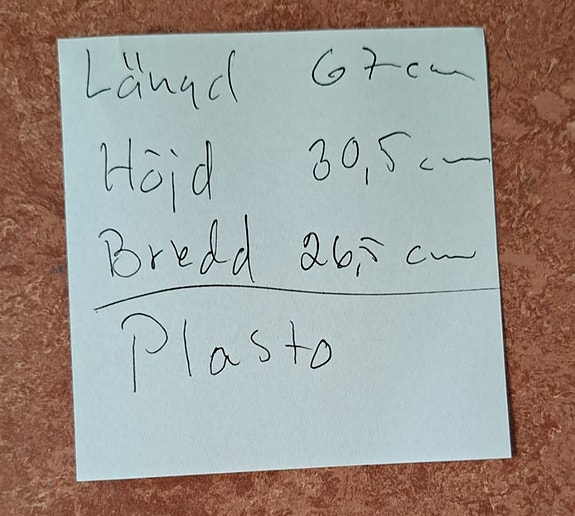 Längd 67 cm
Höjd 30,5 cm
Bredd 26,5 cm
Plasto